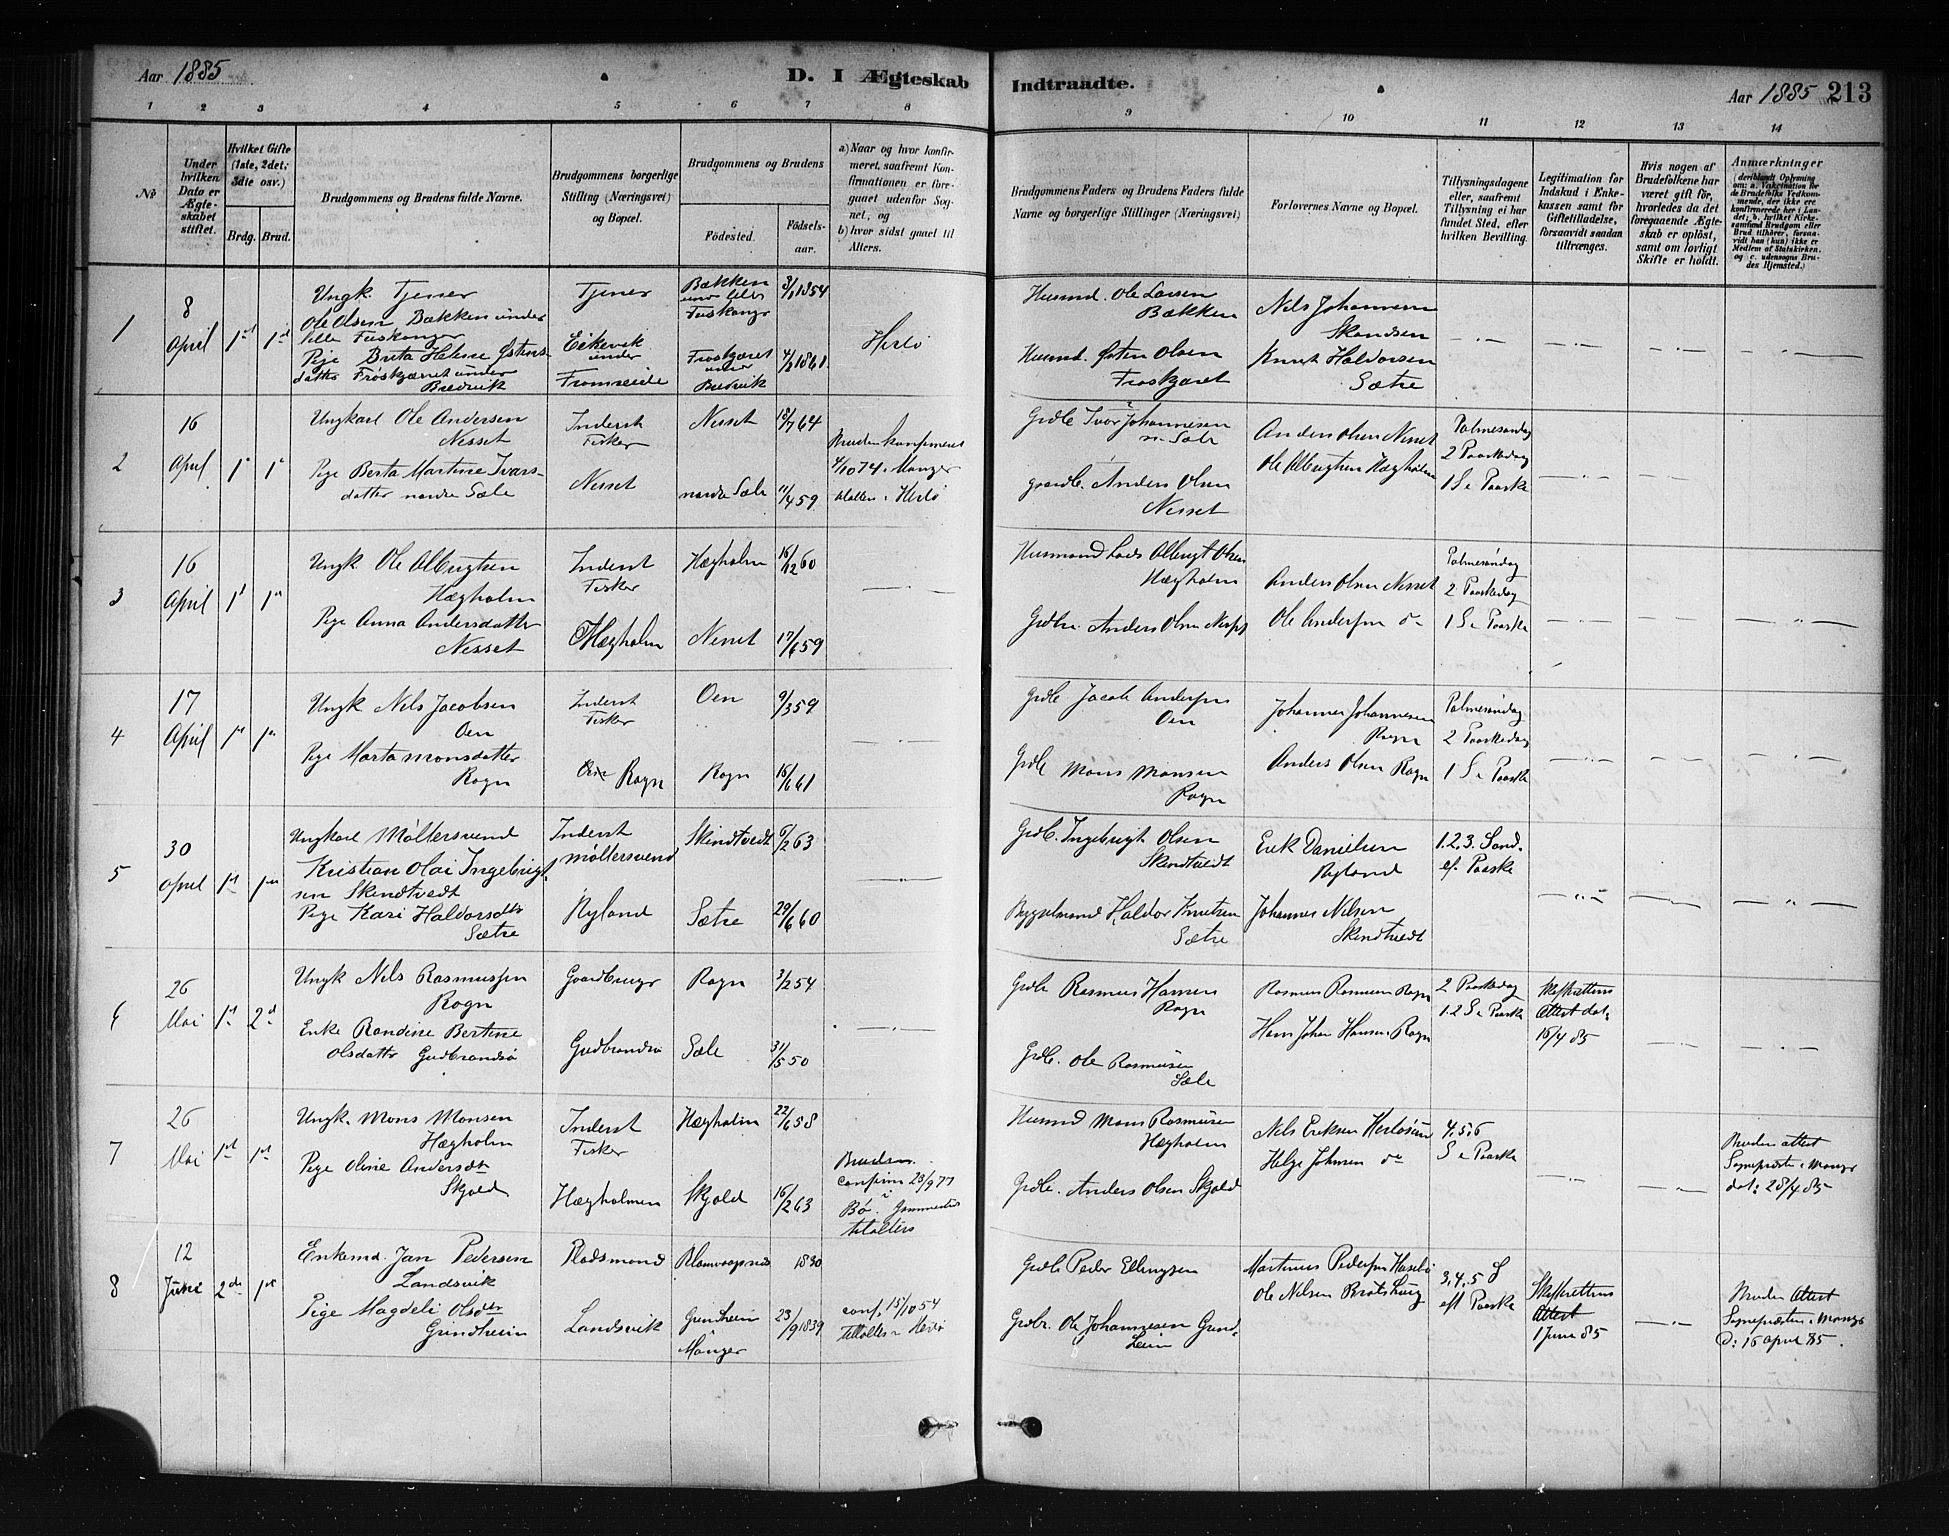 Aar 1885
D. I Ægteskab Indtraadte.
Aar 1885 213
1 2 3 4 5 6 7 8 9 10 11 12 13 14
№
Under
hvilken
Dato er
Ægte-
skabet
stiftet.
Hvilket Gifte
(1ste, 2det;
3die osv.)
Brdg. Brud.
Brudgommens og Brudens fulde Navne.
Brudgommens borgerlige
Stilling (Næringsvei)
og Bopæl.
Brudgommens og Brudens
Fødested.
Fødsels-
aar.
a) Naar og hvor konfir-
meret, saafremt Kon-
firmationen er fore-
gaaet udenfor Sog-
net, og
b) hvor sidst gaaet til
Alters.
Brudgommens Faders og Brudens Faders fulde
Navne og borgerlige Stillinger (Næringsvei)
Forlovernes Navne og Bopæl.
Tillysningsdagene
eller, saafremt
Tillysning ei har
fundet Sted, efter
hvilken Bevilling.
Legitimation for
Indskud i Enke-
kassen samt for
Giftetilladelse,
forsaavidt saadan
tiltrænges.
Hvis nogen af
Brudefolkene har
været gift før,
hvorledes da det
foregaaende Ægte-
skab er opløst,
samt om lovligt
Skifte er holdt.
Anmærkninger
(deriblandt Oplysning
om: a. Vaksination for
de Brudefolks Vedkom-
mende, der ikke ere
konfirmerede her i Lan-
det; b. hvilket Kirke-
samfund Brudgom eller
Brud tilhører, forsaa-
vidt han (hun) ikke er
Medlem af Statskirken.
og c. udensogns Bru-
des Hjemsted.)
1
8
April
Ungk. Tjener
Ole Olsen, Bækken under
lille Fuskanger
Pige Brita Helene Østens-
datter Frøskjæret under
Bredvik
Tjener
Eikevik
under
Fromreide
Bækken
under lille
Fuskangr
3/1 1854
Froskjæret
under
Bredvik
4/3 1861
Herlø
Husmd. Ole Larsen
Bækken
Husmd. Østen Olsen
Froskjæret
Nils Johannesen
Skandsen
Knut Haldorsen
Sætre
2
16
April
Ungkarl Ole Andersen
Nesset
Pige Berta Martine Ivars-
datter nordre Sæle
Inderst
Fisker
Nesset
Nesset
18/7 64
nordre Sæle
11/4 59
Bruden konfirmeret
4/10 74 i Manger
Grdb Ivar Johannesen
n. Sæle
gaardb. Anders Olsen
Nesset
Anders Olsen Nesset
Ole Albrigtsen Hægholm
Palmesøndag
2 Paaskedag
1 S e Paaske
3
16
April
Ungk. Ole Albrigtsen
Hægholm
Pige Anna Andersdatter
Nesset
Inderst
Fisker
Hægholm
Hægholm
16/12 60
Nesset
17/6 59
Husmand Lods Albrigt Olsen
Hægholm
Grdbr. Anders Olsen Nesset
Anders Olsen Nesset
Ole Andersen do
Palmesøndag
2 Paaskedag
1 S e Paaske
4
17
April
Ungk. Nels Jacobsen
Oen
Pige Marta Monsdatter
Rogn
Inderst
Fisker
Rogn
Oen
9/3 59
Rogn
16/6 61
Grdb. Jacob Andersen
Oen
Grdb Mons Monsen
Rogn
Johannes Johannesen
Rogn
Anders Olsen Rogn
Palmesøndag
2 Paaskedag
1 S e Paaske
5
30
April
Ungkarl Møllersvend
Kristian Olai Ingebrigt-
sen Skindtvedt
Pige Kari Haldorsdtr
Sætre
Inderst
møllersvend
Ryland
Skindtvedt
6/2 63
Sætre
29/6 60
Grdb. Ingebrigt Olsen
Skindtvedt
Bygselmand Haldor Knutsen
Sætre
Erik Danielsen
Ryland
Johannes Nilsen
Skindtvedt
1.2.3. Sønd.
ef. Paaske
6
26
Mai
Ungk Nils Rasmussen
Rogn
Enke Randine Bertine
Olsdatter Gudbrandsø
Gaardbruger
Gudbrandsø
Rogn
3/2 54
Sæle
31/5 50
Grdb Rasmus Hansen
Rogn
Grdb. Ole Rasmusen
Sæle
Rasmus Rasmusen Rogn
Hans Johan Hansen Rogn
2 Paaskedag
1.2 S e Paaske
Skifterettens
Attest dat:
15/4 85
7
26
Mai
Ungk. Mons Monsen
Hægholm
Pige Oline Andersdtr
Skjold
Inderst
Fisker
Hægholmen
Hægholm
22/6 58
Skjold
16/2 63
Bruden
confirm 23/9 77
i
Bø.
Husmd Mons Rasmusen
Hægholm
Grdb. Anders Olsen Skjold
Nels Eriksen Herløsund
Helge Johnsen do
4,5,6
S e Paaske
Bruden attest
Sognepræsten i Manger
dat: 28/4 85
8
12
Juni
Enkemd. Jan Pedersen
Landsvik
Pige Magdeli Olsdtr
Grindheim
Pladsmand
Landsvik
1830
Grindheim
i
Manger
23/9 1839
conf. 15/10 54
Grdb Peder Ellingsen
Grdbr. Ole Johannesen Grind-
heim
Martinus Pedersen
Ole Nilsen
3,4,5 S
eft Paaske
Skifterettens
Attest
1 Juni 85
Bruden Attest
Sognepræsten i Manger
D: 16 april 85.